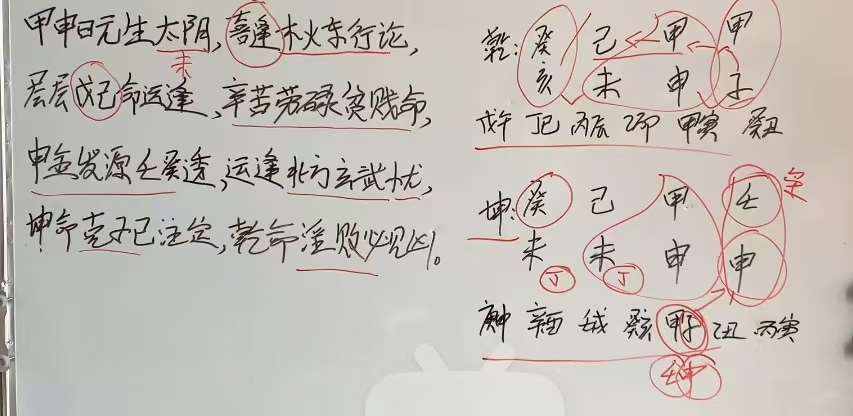 甲申日元生太阴,喜逢木火东行论,
未
层层戊己命运逢,辛苦劳碌贫贱命,
申金发源壬癸透,运逢北方玄武扰,
坤命克子已注定,乾命淫败必见凶。
乾: 癸 己 甲 甲
亥 未 申 子
戊午 丁巳 丙辰 乙卯 甲寅 癸丑
坤: 癸 己 甲 壬
未 未 申 申
丁 丁
庚申 辛酉 壬戌 癸亥 甲子 乙丑 丙寅
壬申